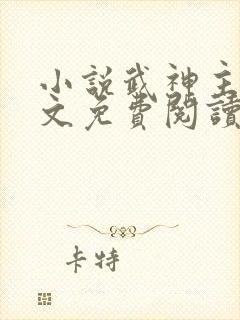 小說武神主
文免費閱讀
卡特